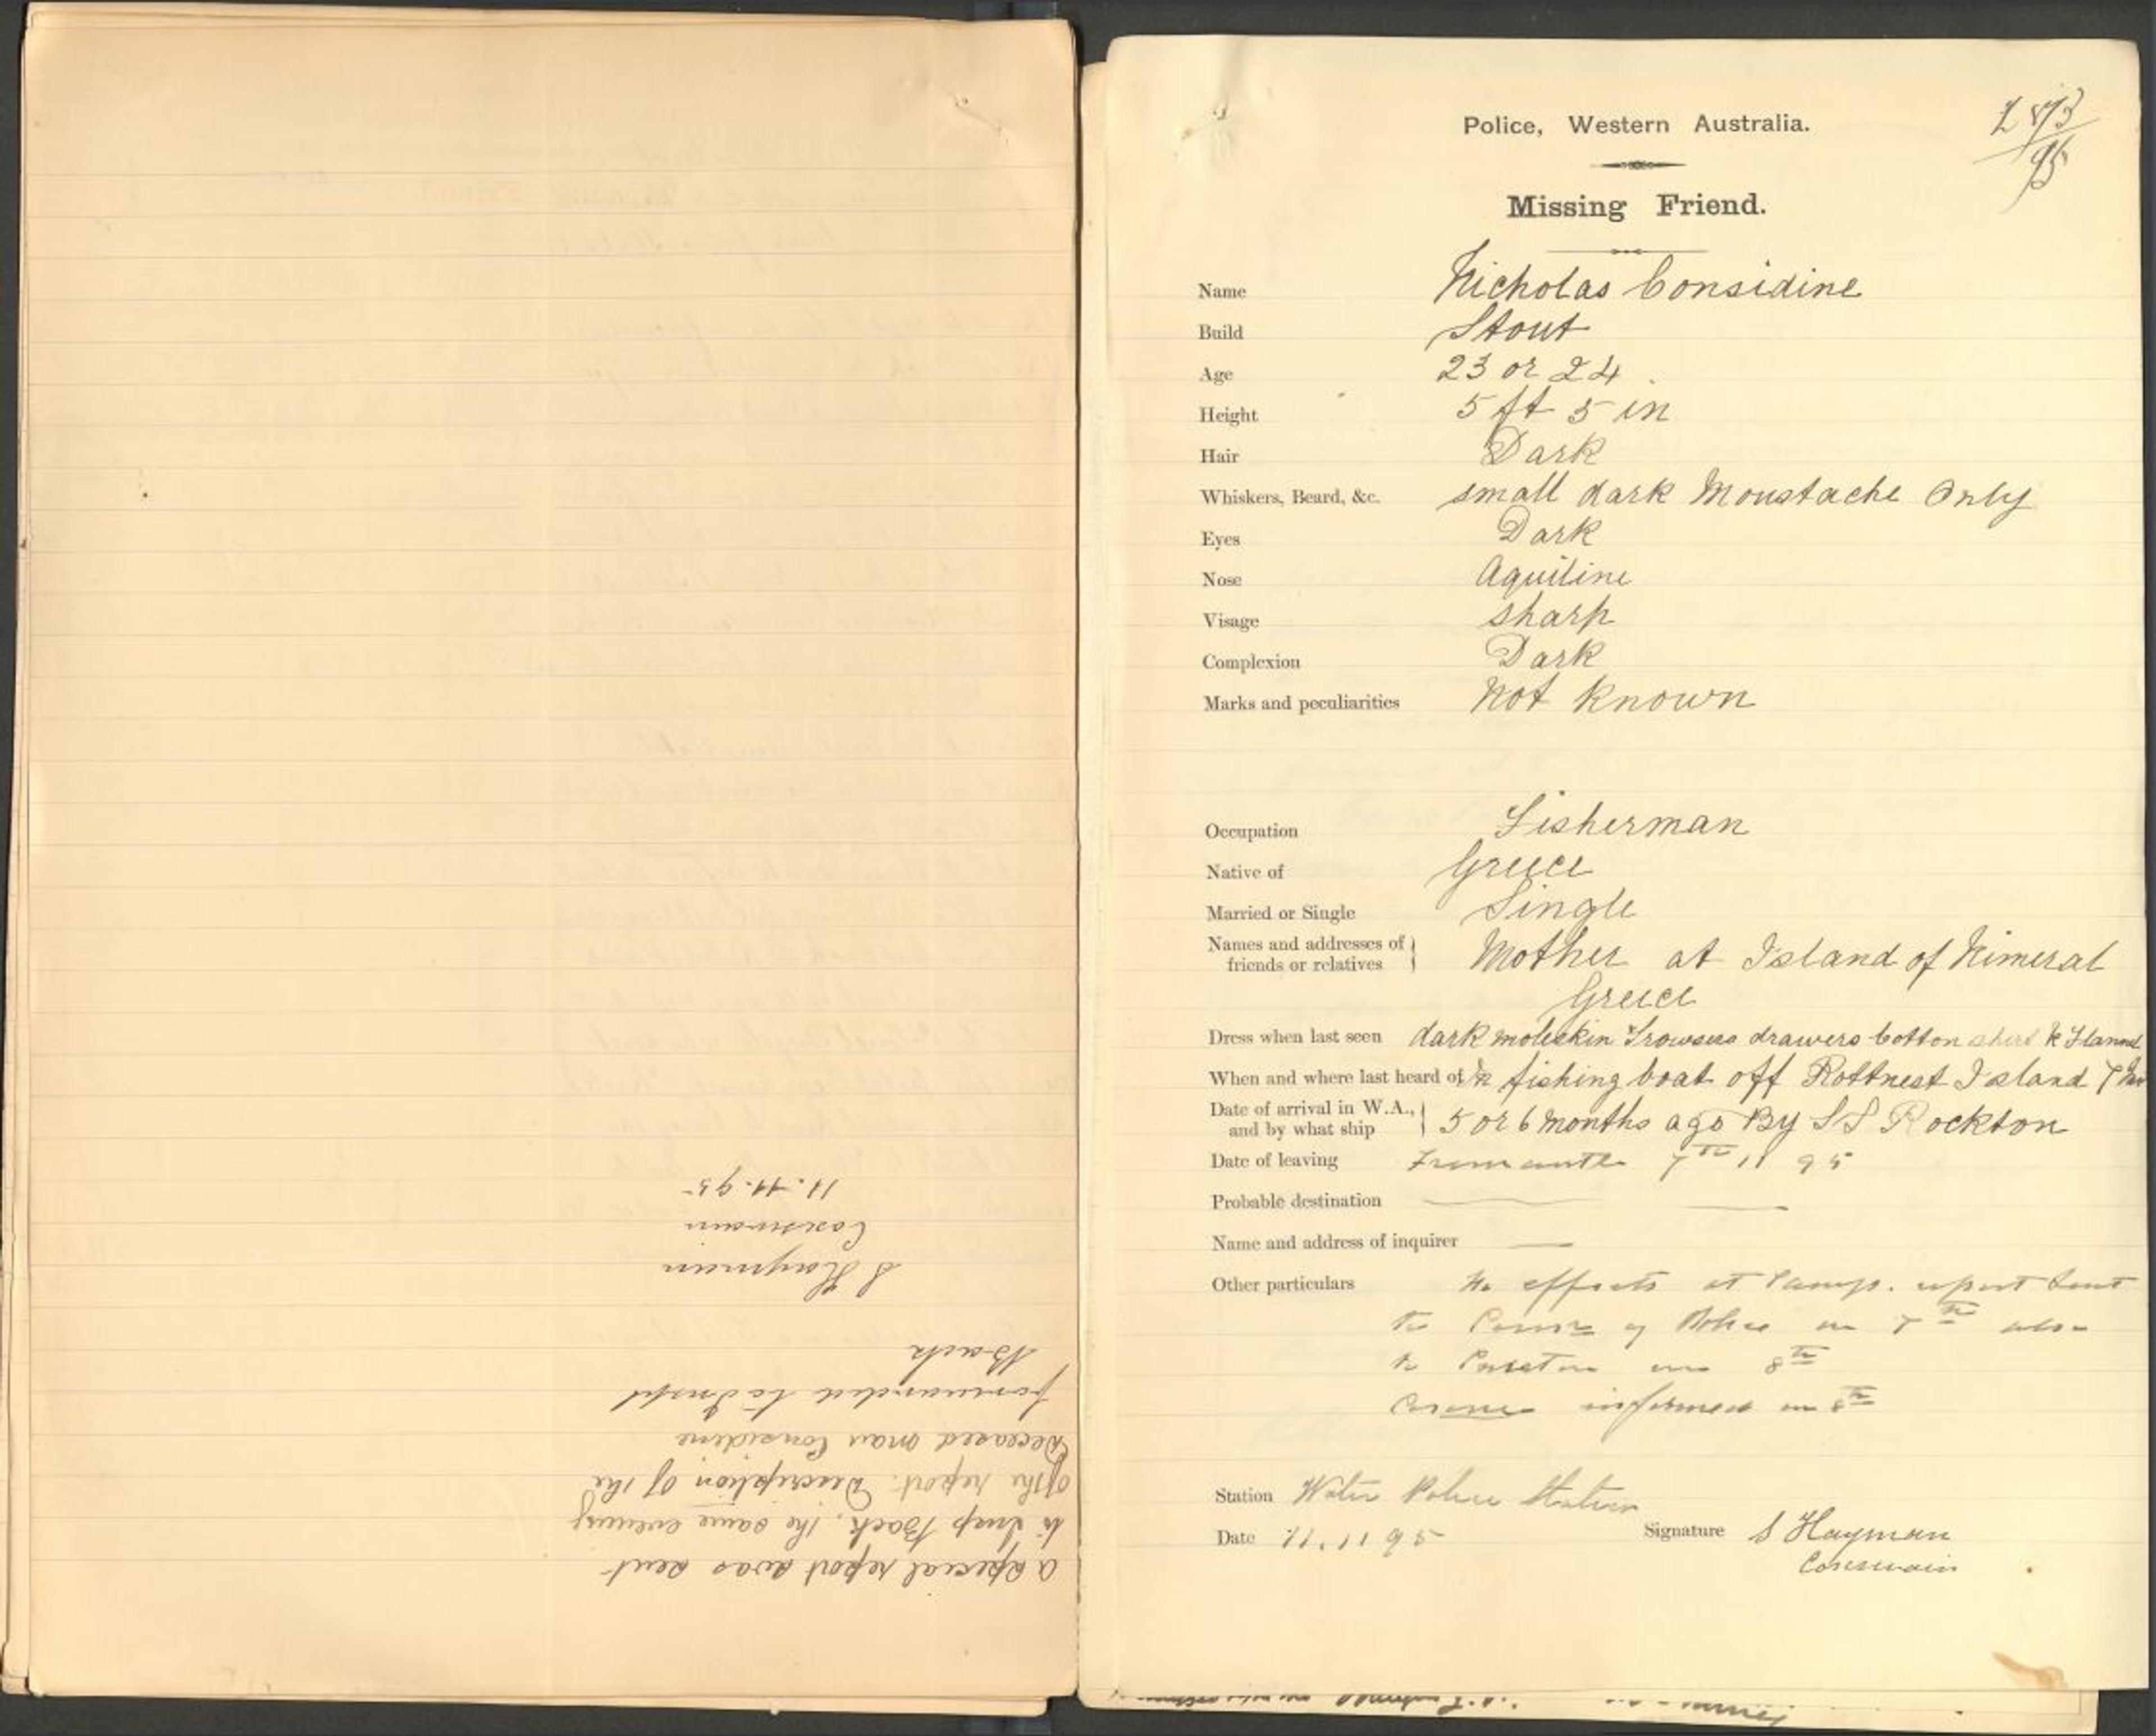 a special report was sent
to Insp Back, the same evening
of the report. Description of the
Deceased man Considine
forwarded to Inspt
Back
S Hayman
Coxswain
11.11.95
Police, Western Australia.
95
Missing Friend.
Name Nicholas Considine
Build Stout
Age 23 or 24
Height 5 ft 5 in
Hair Dark
Whiskers, Beard, &c. small dark Moustache Only
Eyes Dark
Nose Aquiline
Visage sharp
Complexion Dark
Marks and peculiarities Not Known
Occupation Fisherman
Native of Greece
Married or Single Single
Names and addresses of friends or relatives } Mother at Island of Kimeral
Greece
Dress when last seen dark moleskin Trowsers drawers Cotton shirt & Flannel
When and where last heard of In fishing boat off Rottnest Island 7
Date of arrival in W.A., and by what ship } 5 or 6 Months ago By SS Rockton
Date of leaving Fremantle 7th 11 95
Probable destination —
Name and address of inquirer —
Other particulars No effects at Camp. report sent
to Commr of Police on 7th also
to on 8th
Coroner informed on 8th
Station Water Police Station
Date 11.11 95 Signature S Hayman
Coxswain